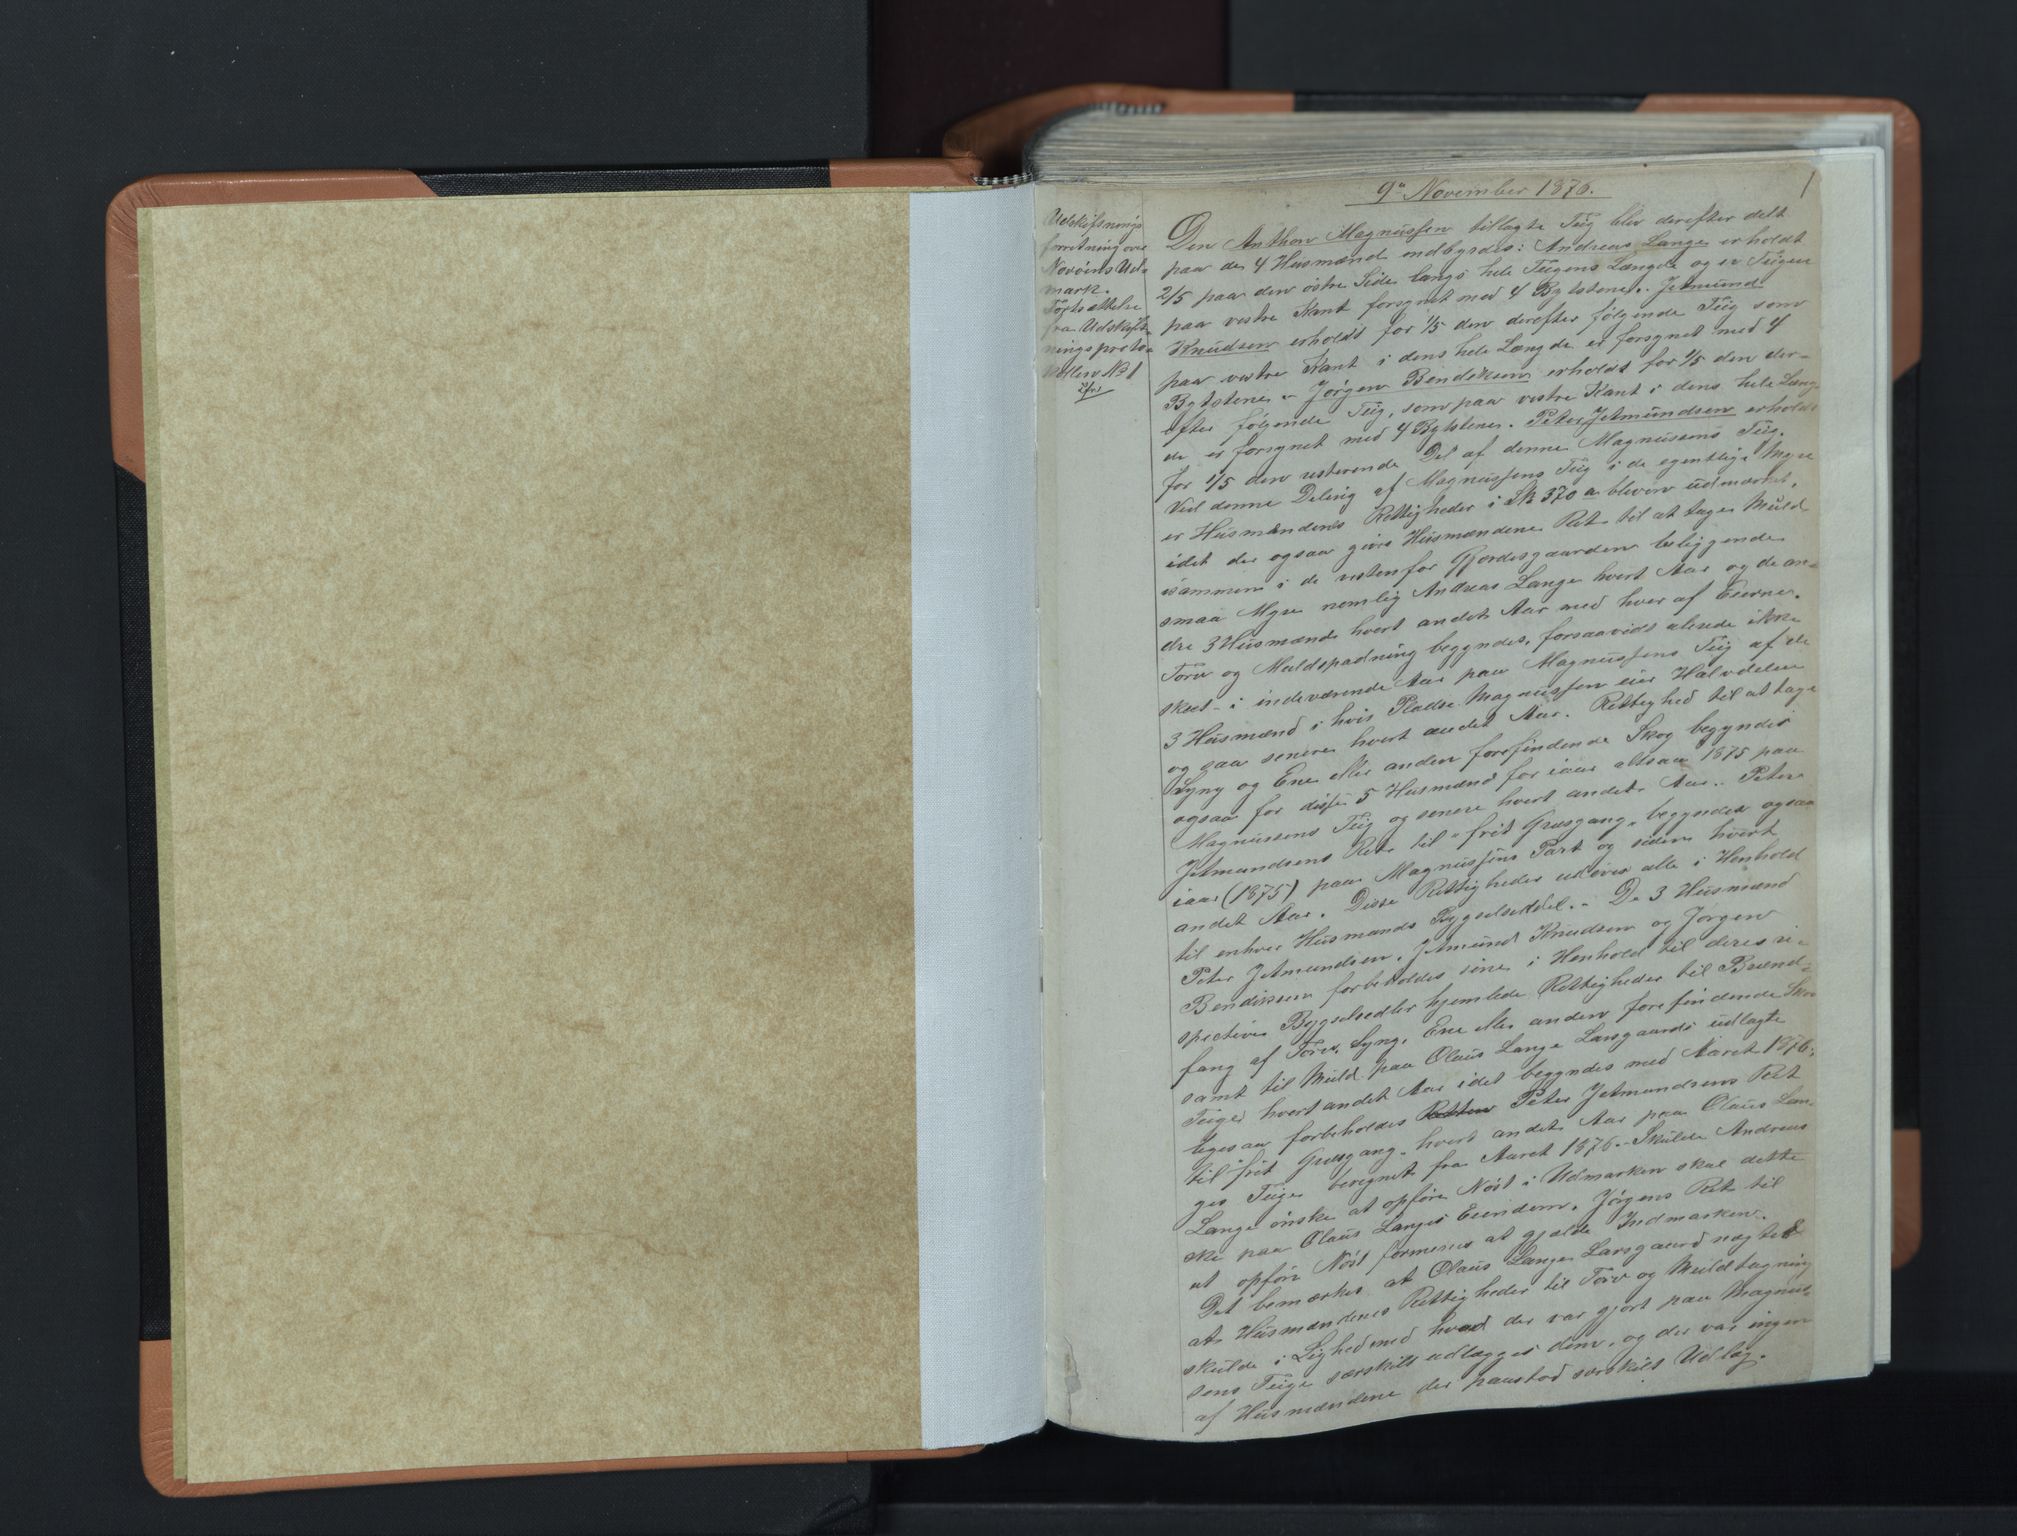 1
9de November 1876.
Udskiftnings
forretning over
Norøens Ud-
mark.
Fortsættelse
fra Udskift-
ningsproto-
kollen No 1
Den Anthon Magnussen tillagte Teig blev derefter delt
paa de 4 Husmænd indbyrdes: Andreas Lange erholdt
2/5 paa den østre Side langs hele Teigens Længde og er Teigen
paa vestre Kant forsynet med 4 Bytstene. Jetmund
Knudsen erholdt for 1/5 den derefter følgende Teig som
paa vestre Kant i dens hele Længde er forsynet med 4
Bytstene. - Jørgen Bendiksen erholdt for 1/5 den der-
efter følgende Teig, som paa vestre Kant i dens hele Læng-
de er forsynet med 4 Bytstene. Peter Jetmundsen erholdt
for 1/5 den resterende Del af denne Magnussens Teig.
Ved denne Deling af Magnussens Teig i de egentlige Myre
er Husmændenes Rettigheder i Sk 370 a bleven udmærket,
idet der ogsaa gives Husmændene Ret til at tage Muld
isammen i de vestenfor Gjerdesgaarden beliggende
smaa Myre nemlig Andreas Lange hvert Aar og de an-
dre 3 Husmænd hvert andet Aar med hver af Eierne.
Torv og Muldspadning begyndes, forsaavidt alerede ikke
skeet - i indeværende Aar paa Magnussens Teig af de
3 Husmænd i hvis Pladse Magnussen eier Halvdelen
og saa senere hvert andet Aar. Rettighed til at tage
Lyng og Ene eller anden forefindende Skog begyndes
ogsaa for disse 5 Husmænd for iaar altsaa 1875 paa
Magnussens Teig og senere hvert andet Aar. Peter
Jetmundsens Ret til "frit Græsgang" begyndes ogsaa
iaar (1875) paa Magnussens Part og siden hvert
andet Aar. Disse Rettigheder udøves alle i Henhold
til enhver Husmands Bygselseddel. - De 3 Husmænd
Peter Jetmundsen, Jetmund Knudsen og Jørgen
Bendiksen forbeholdes sine i Henhold til deres re-
spective Bygselsedler hjemlede Rettigheder til Brænd-
fang af Torv, Lyng, Ene eller anden forefindende Skov
samt til Muld paa Olaus Lange Larsgaards udlagte
Teige hvert andet Aar idet begyndes med Aaret 1876;
ligesaa forbeholdes Retten Peter Jetmundsens Ret
til "frit Græsgang" hvert andet Aar paa Olaus Lan-
ges Teige beregnet fra Aaret 1876. - Skulde Andreas
Lange ønske at opføre Nøst i Udmarken skal dette
ske paa Olaus Langes Eiendom. Jørgens Ret til
at opføre Nøst formenes at gjælde Indmarken.
Det bemærkes at Olaus Lange Larsgaard nægtede
at Husmændenes Rettigheder til Torv og Muldtagning
skulde i Lighed med hvad der var gjort paa Magnus-
sens Teige særskilt udlægges dem, og der var ingen
af Husmændene der paastod særskilt Udlæg.